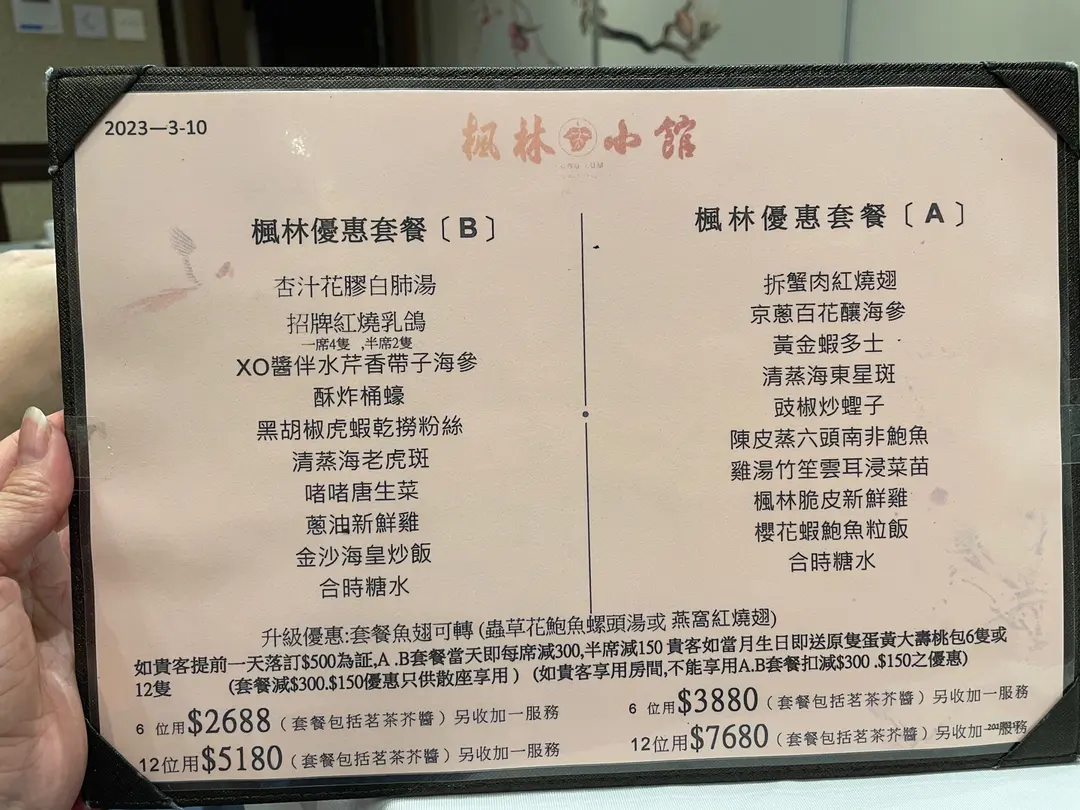 2023—3-10
楓林小館
楓林優惠套餐〔B〕
杏汁花膠白肺湯
招牌紅燒乳鴿
一席4隻 ,半席2隻
XO醬伴水芹香帶子海參
酥炸桶蠔
黑胡椒虎蝦乾撈粉絲
清蒸海老虎斑
啫啫唐生菜
蔥油新鮮雞
金沙海皇炒飯
合時糖水
楓林優惠套餐〔A〕
拆蟹肉紅燒翅
京蔥百花釀海參
黃金蝦多士
清蒸海東星斑
豉椒炒蟶子
陳皮蒸六頭南非鮑魚
雞湯竹笙雲耳浸菜苗
楓林脆皮新鮮雞
櫻花蝦鮑魚粒飯
合時糖水
升級優惠:套餐魚翅可轉 (蟲草花鮑魚螺頭湯或 燕窩紅燒翅)
如貴客提前一天落訂$500為証,A .B套餐當天即每席減300,半席減150 貴客如當月生日即送原隻蛋黃大壽桃包6隻或
12隻 (套餐減$300.$150優惠只供散座享用 ) (如貴客享用房間,不能享用A.B套餐扣減$300 .$150之優惠)
6 位用$2688（套餐包括茗茶芥醬）另收加一服務
12位用$5180（套餐包括茗茶芥醬）另收加一服務
6 位用$3880（套餐包括茗茶芥醬）另收加一服務
12位用$7680（套餐包括茗茶芥醬）另收加一服務